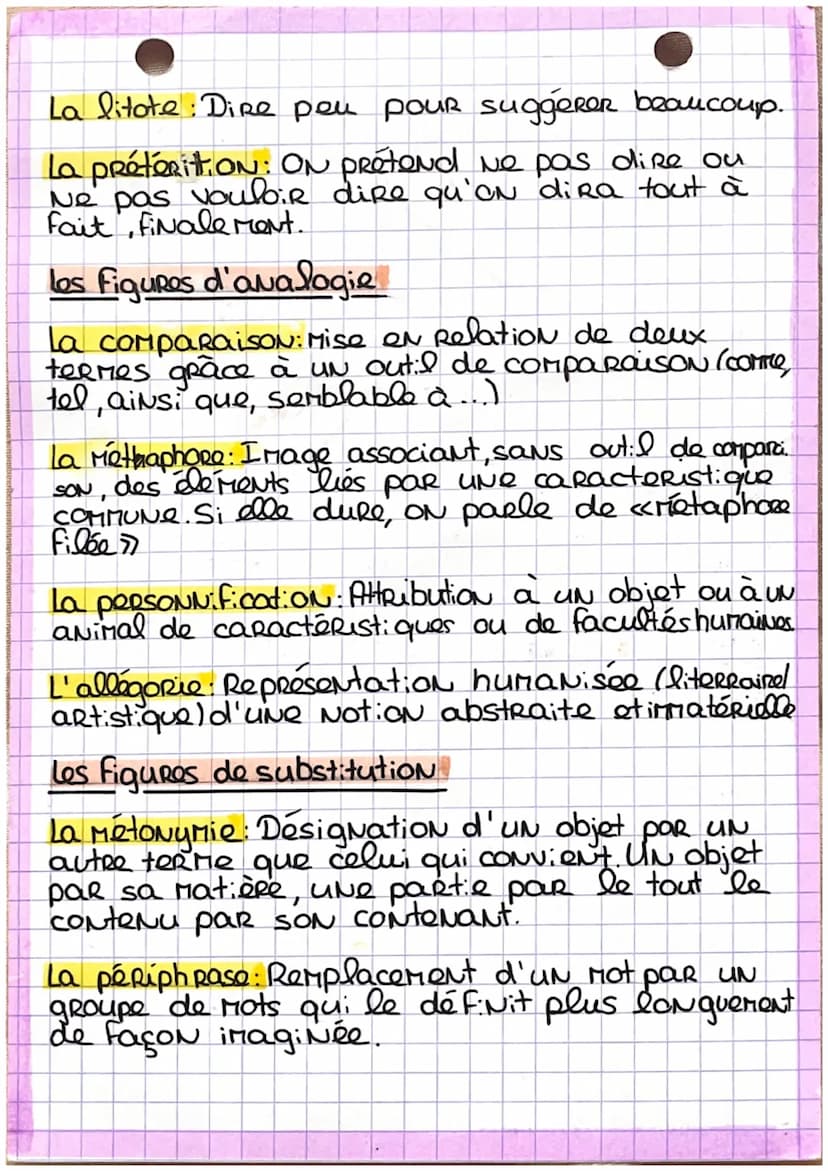 La litote : Dire peu pour suggérer beaucoup.
La prétérition : On prétend ne pas dire ou
ne pas vouloir dire qu'on dira tout à
fait, finalement.
les figures d'analogie
La comparaison : Mise en relation de deux
termes grâce à un outil de comparaison (comme,
tel, ainsi que, semblable à ...)
La méthaphore : Image associant, sans outil de comparai.
son, des éléments liés par une caracteristique
commune. Si elle dure, on parle de «métaphore
filée»
La personnification : Attribution à un objet ou à un
animal de caractéristiques ou de facultés humaines
L'allégorie : Représentation humanisée (literraire/
artistique) d'une notion abstraite et immatérielle
Les figures de substitution
La métonymie : Désignation d'un objet par un
autre terme que celui qui convient. Un objet
par sa matière, une partie par le tout le
contenu par son contenant.
La périphrase : Remplacement d'un mot par un
groupe de mots qui le définit plus longuement
de façon imaginée.